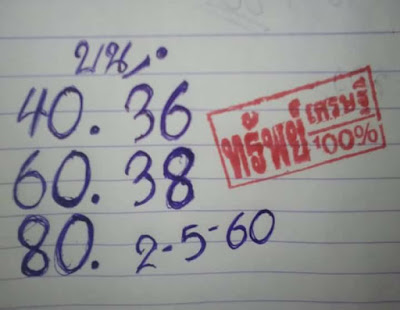 บน
40. 36
60. 38
80. 2-5-60
ทรัพย์เศรษฐี
100%